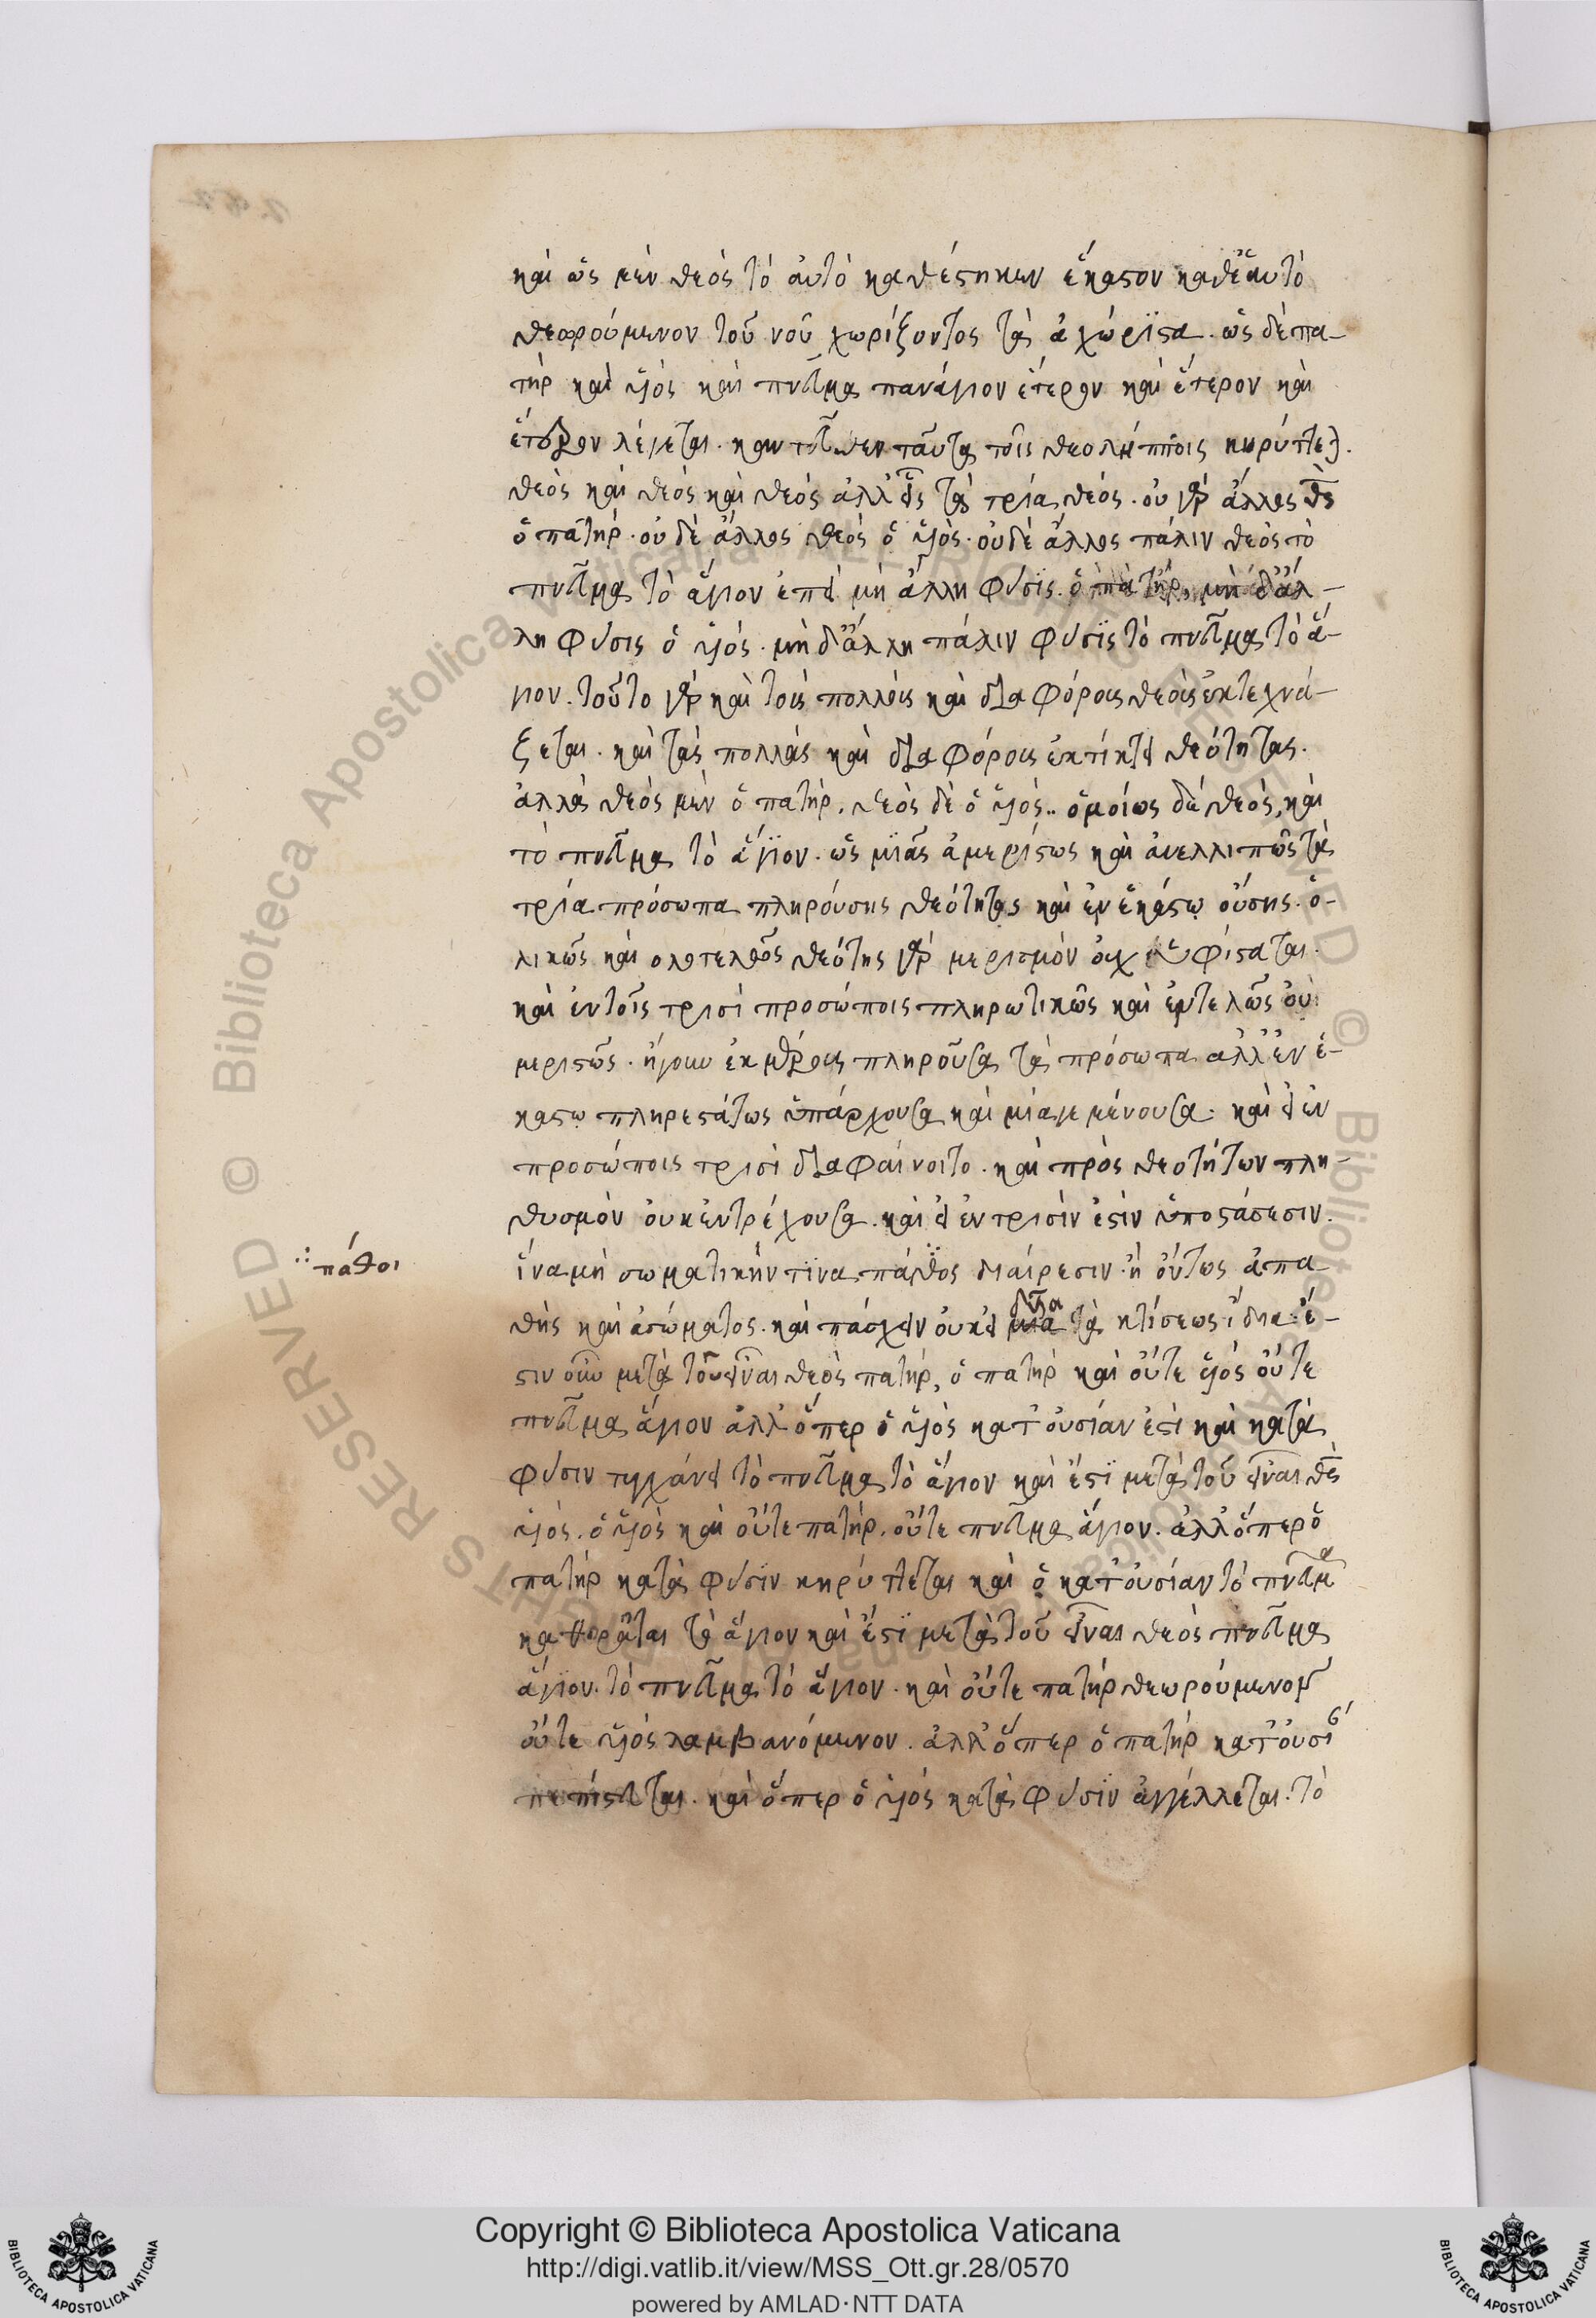 καὶ ὡς μὲν θεὸς τὸ αὐτὸ καθέστηκεν ἕκαστον καθ' ἑαυτὸ
θεωρούμενον τοῦ νοῦ χωρίζοντος τὰ ἀχώριστα. ὡς δὲ πα-
τὴρ καὶ υἱὸς καὶ πνεῦμα πανάγιον ἕτερον καὶ ἕτερον καὶ
ἕτερον λέγεται. ταῦτα τοῖς θεολήπτοις κηρύττεται.
θεὸς καὶ θεὸς καὶ θεὸς ἀλλ' εἷς τὰ τρία θεός. οὐ γὰρ ἄλλος θεὸς
ὁ πατήρ. οὐδὲ ἄλλος θεὸς ὁ υἱός. οὐδὲ ἄλλος πάλιν θεὸς τὸ
πνεῦμα τὸ ἅγιον ἐπεὶ μὴ ἄλλη φύσις ὁ πατήρ, μὴ δ' ἄλ-
λη φύσις ὁ υἱός. μὴ δ' ἄλλη πάλιν φύσις τὸ πνεῦμα τὸ ἅ-
γιον. τοῦτο γὰρ καὶ τοὺς πολλοὺς καὶ διαφόρους θεοὺς ἐκτεχνά-
ζεται. καὶ τὰς πολλὰς καὶ διαφόρους ἐκτίκτει θεότητας.
ἀλλὰ θεὸς μὲν ὁ πατήρ. θεὸς δὲ ὁ υἱός.. ὁμοίως δὲ θεὸς, καὶ
τὸ πνεῦμα τὸ ἅγιον. ὡς μιᾶς ἀμερίστως καὶ ἀνελλιπῶς τὰ
τρία πρόσωπα πληρούσης θεότητος καὶ ἐν ἑκάστῳ οὔσης. ὁ-
λικῶς καὶ ολοτελῶς θεότης γὰρ μερισμὸν οὐχ ὑφίσταται.
καὶ ἐν τοῖς τρισὶ προσώποις πληρωτικῶς καὶ ἐντελῶς οὐ
μεριστῶς. ἤγουν ἐκ μέρους πληροῦσα τὰ πρόσωπα ἀλλ' ἐν ἑ-
κάστῳ πληρεστάτως ὑπάρχουσα καὶ μία γε μένουσα. καὶ εἰ ἐν
προσώποις τρισὶ διαφαίνοιτο. καὶ πρὸς θεοτήτων πλη-
θυσμὸν οὐκ ἐντρέχουσα. καὶ εἰ ἐν τρισὶν ἐστὶν ὑποστάσεσιν.
ἵνα μὴ σωματικήν τινα πάθος διαίρεσιν ἡ ὄντως ἀπα-
∴ πάθοι
θὴς καὶ ἀσώματος. καὶ πάσχειν οὐκ εἰδυῖα τὰ κτίσεως ἴδια. ἔ-
στιν οὖν μετὰ τοῦ εἶναι θεὸς πατήρ, ὁ πατὴρ καὶ οὔτε υἱὸς οὔτε
πνεῦμα ἅγιον ἀλλ' ὅπερ ὁ υἱὸς κατ' οὐσίαν ἐστὶ καὶ κατὰ
φύσιν τυγχάνει τὸ πνεῦμα τὸ ἅγιον καὶ ἔστι μετὰ τοῦ εἶναι θεὸς
υἱός. ὁ υἱὸς καὶ οὔτε πατήρ. οὔτε πνεῦμα ἅγιον. ἀλλ' ὅπερ ὁ
πατὴρ κατὰ φύσιν κηρύττεται καὶ ὃ κατ' οὐσίαν τὸ πνεῦμα
καθορᾶται τὸ ἅγιον καὶ ἔστι μετὰ τοῦ εἶναι θεὸς πνεῦμα
ἅγιον. τὸ πνεῦμα τὸ ἅγιον. καὶ οὔτε πατὴρ θεωρούμενον
οὔτε υἱὸς λαμβανόμενον. ἀλλ' ὅπερ ὁ πατὴρ κατ' οὐσίαν
πεπίστευται. καὶ ὅπερ ὁ υἱὸς κατὰ φύσιν ἀγγέλλεται. τὸ
Copyright © Biblioteca Apostolica Vaticana
http://digi.vatlib.it/view/MSS_Ott.gr.28/0570
powered by AMLAD·NTT DATA